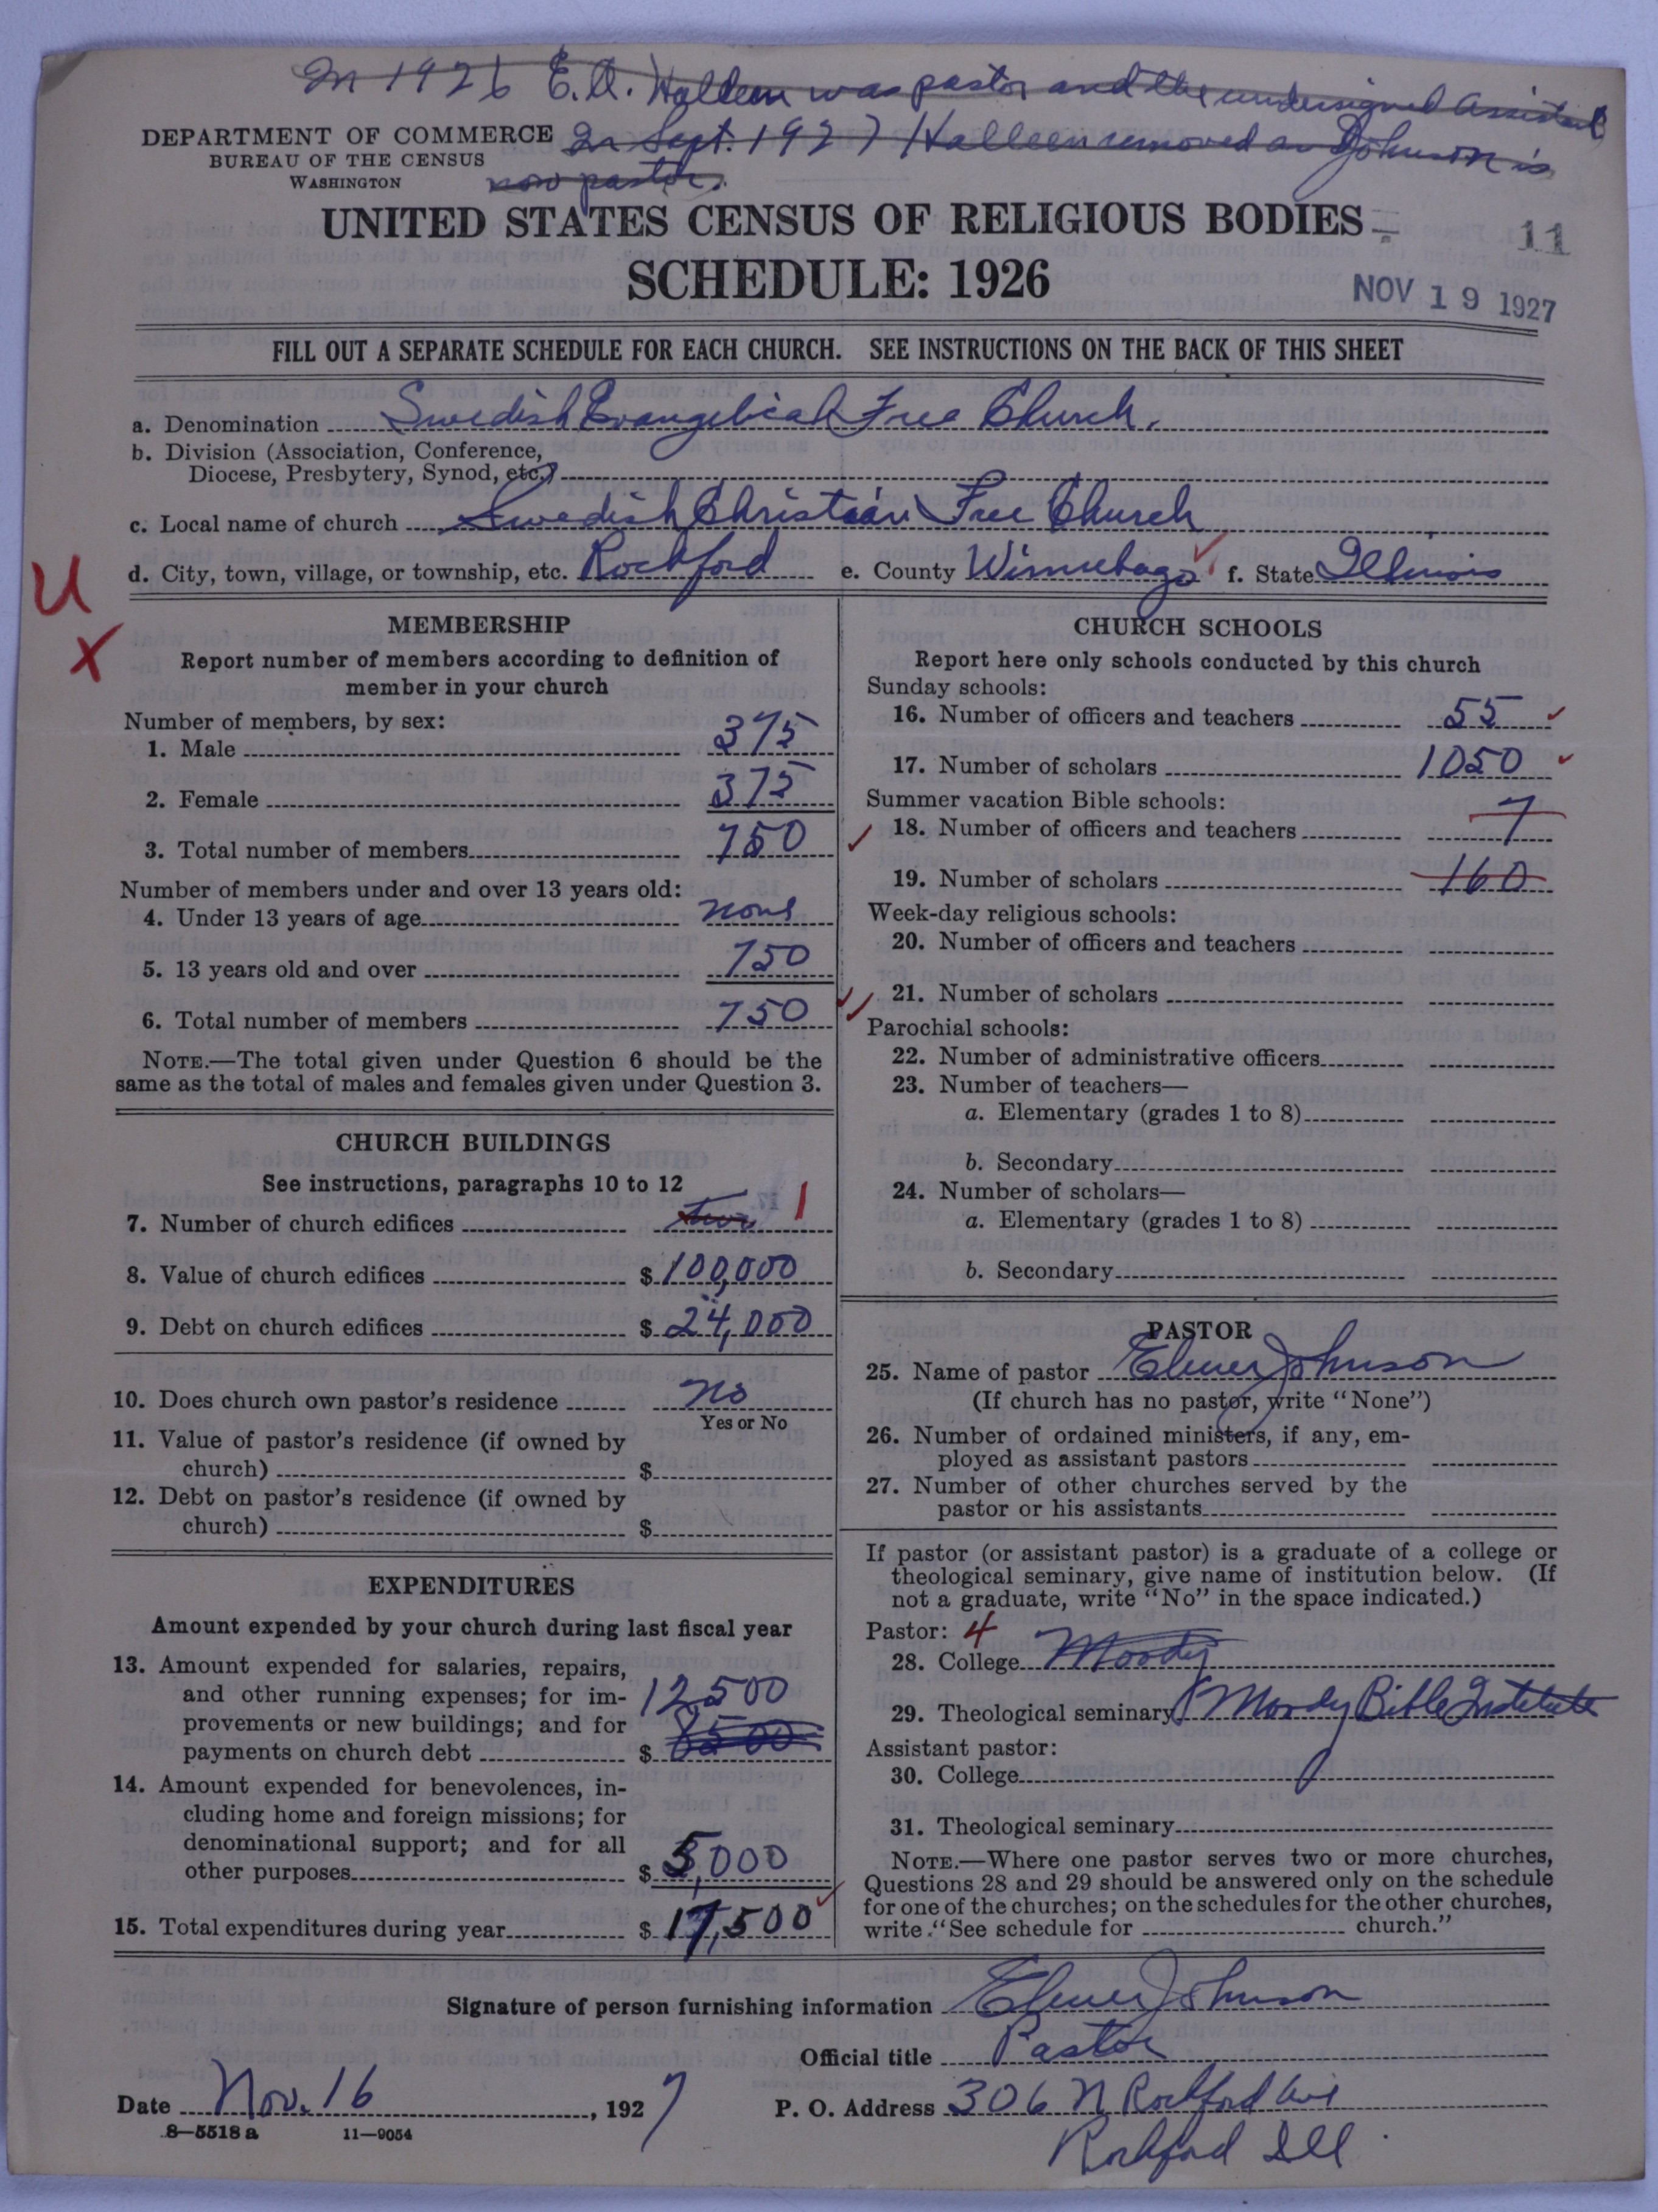 In 1926 E.A. Halleen was pastor and the undersigned assistant
DEPARTMENT OF COMMERCE In Sept. 1927 Halleen removed as Johnson is
BUREAU OF THE CENSUS
WASHINGTON now pastor.
UNITED STATES CENSUS OF RELIGIOUS BODIES
11
SCHEDULE: 1926
NOV 19 1927
FILL OUT A SEPARATE SCHEDULE FOR EACH CHURCH. SEE INSTRUCTIONS ON THE BACK OF THIS SHEET
a. Denomination Swedish Evangelical Free Church.
b. Division (Association, Conference,
Diocese, Presbytery, Synod, etc.)
c. Local name of church Swedish Christian Free Church
d. City, town, village, or township, etc. Rockford e. County Winnebago f. State Illinois
U
X
MEMBERSHIP
Report number of members according to definition of
member in your church
Number of members, by sex:
1. Male 375
2. Female 375
3. Total number of members 750
Number of members under and over 13 years old:
4. Under 13 years of age none
5. 13 years old and over 750
6. Total number of members 750
NOTE.—The total given under Question 6 should be the
same as the total of males and females given under Question 3.
CHURCH BUILDINGS
See instructions, paragraphs 10 to 12
7. Number of church edifices two 1
8. Value of church edifices $ 100,000
9. Debt on church edifices $ 24,000
10. Does church own pastor's residence no
Yes or No
11. Value of pastor's residence (if owned by
church) $
12. Debt on pastor's residence (if owned by
church) $
EXPENDITURES
Amount expended by your church during last fiscal year
13. Amount expended for salaries, repairs,
and other running expenses; for im- 12500
provements or new buildings; and for
payments on church debt $ 8500
14. Amount expended for benevolences, in-
cluding home and foreign missions; for
denominational support; and for all
other purposes $ 5,000
15. Total expenditures during year $ 17,500
CHURCH SCHOOLS
Report here only schools conducted by this church
Sunday schools:
16. Number of officers and teachers 55
17. Number of scholars 1050
Summer vacation Bible schools:
18. Number of officers and teachers 7
19. Number of scholars 160
Week-day religious schools:
20. Number of officers and teachers
21. Number of scholars
Parochial schools:
22. Number of administrative officers
23. Number of teachers—
a. Elementary (grades 1 to 8)
b. Secondary
24. Number of scholars—
a. Elementary (grades 1 to 8)
b. Secondary
PASTOR
25. Name of pastor Elmer Johnson
(If church has no pastor, write "None")
26. Number of ordained ministers, if any, em-
ployed as assistant pastors
27. Number of other churches served by the
pastor or his assistants
If pastor (or assistant pastor) is a graduate of a college or
theological seminary, give name of institution below. (If
not a graduate, write "No" in the space indicated.)
Pastor: 4
28. College Moody
29. Theological seminary Moody Bible Institute
Assistant pastor:
30. College
31. Theological seminary
NOTE.—Where one pastor serves two or more churches,
Questions 28 and 29 should be answered only on the schedule
for one of the churches; on the schedules for the other churches,
write "See schedule for church."
Signature of person furnishing information Elmer Johnson
Official title Pastor
Date Nov. 16, 1927 P. O. Address 306 N Rockford Ave
8—5518 a 11—9054 Rockford Ill